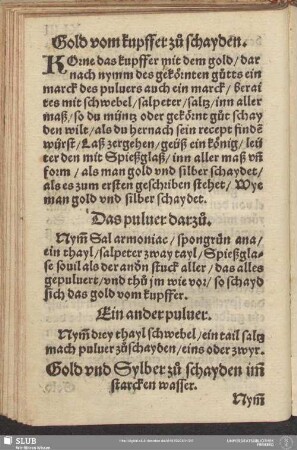 Gold vom kupffer zů schayden.
KÖrne das kupffer mit dem gold/dar
nach nymm des gekörnten gůtts ein
marck des puluers auch ein marck/berai
tes mit schwebel/salpeter/saltz/inn aller
maß/so du müntz oder gekörnt gůt schay
den wilt/als du hernach sein recept findē
würst/Laß zergehen/geüß ein könig/leü
ter den mit Spießglaß/inn aller maß vñ
form/als man gold vnd silber schaydet/
als es zum ersten geschriben stehet/Wye
man gold vnd silber schaydet.
Das puluer darzů.
Nym̄ Sal armoniac/spongrün ana/
ein thayl/salpeter zway tayl/Spießgla-
se souil als der andn stuck aller/das alles
gepuluert/vnd thů jm wie vor/so schayd
sich das gold vom kupffer.
Ein ander puluer.
Nym̄ drey thayl schwebel/ein tail saltz
mach puluer zůschayden/eins oder zwyr.
Gold vnd Sylber zů schayden im̄
starcken wasser.
Nym̄
SLUB